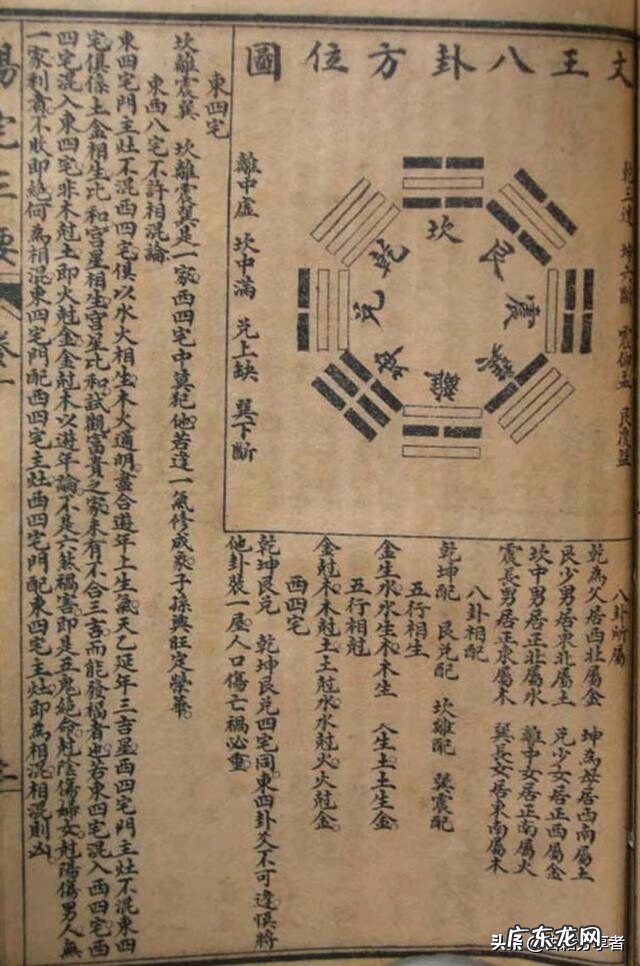 文王八卦方位圖
乾三連 坤六斷 震仰盂 艮覆盌
坎
艮
震
巽
離
坤
兌
乾
離中虛 坎中滿 兌上缺 巽下斷
八卦所屬
乾為父居西北屬金 坤為母居西南屬土
艮少男居東北屬土 兌少女居正西屬金
坎中男居正北屬水 離中女居正南屬火
震長男居正東屬木 巽長女居東南屬木
八卦相配
乾坤配 艮兌配 坎離配 巽震配
五行相生
金生水水生木木生 火生土土生金
五行相尅
金尅木木尅土土尅水水尅火火尅金
西四宅
乾坤艮兌 乾坤艮兌四宅同東四卦爻不可逢悞將
他卦裝一屋人口傷亡禍必重
東四宅
坎離震巽 坎離震巽是一家西四宅中莫犯他若逢一氣修成象子孫興旺定榮華
東西八宅不許相混論
東四宅門主灶不混西四宅俱以水火相生木火通明盡合遊年上生氣天乙延年三吉星西四宅門主灶不混東四
宅俱係土金相生比和宮星相生宮星比和試觀富貴之家未有不合三吉而能發福者也若東四宅混入西四宅西
四宅混入東四宅非木尅土即火尅金金尅木以遊年論不是六煞禍害即是五鬼絕命尅陰傷婦女尅陽傷男人無
一家利者不敗即絕何為相混東四宅門配西四宅主灶西四宅門配東四宅主灶即為相混相混則凶
陽宅三要 卷一
頭条
广东龙网
享者